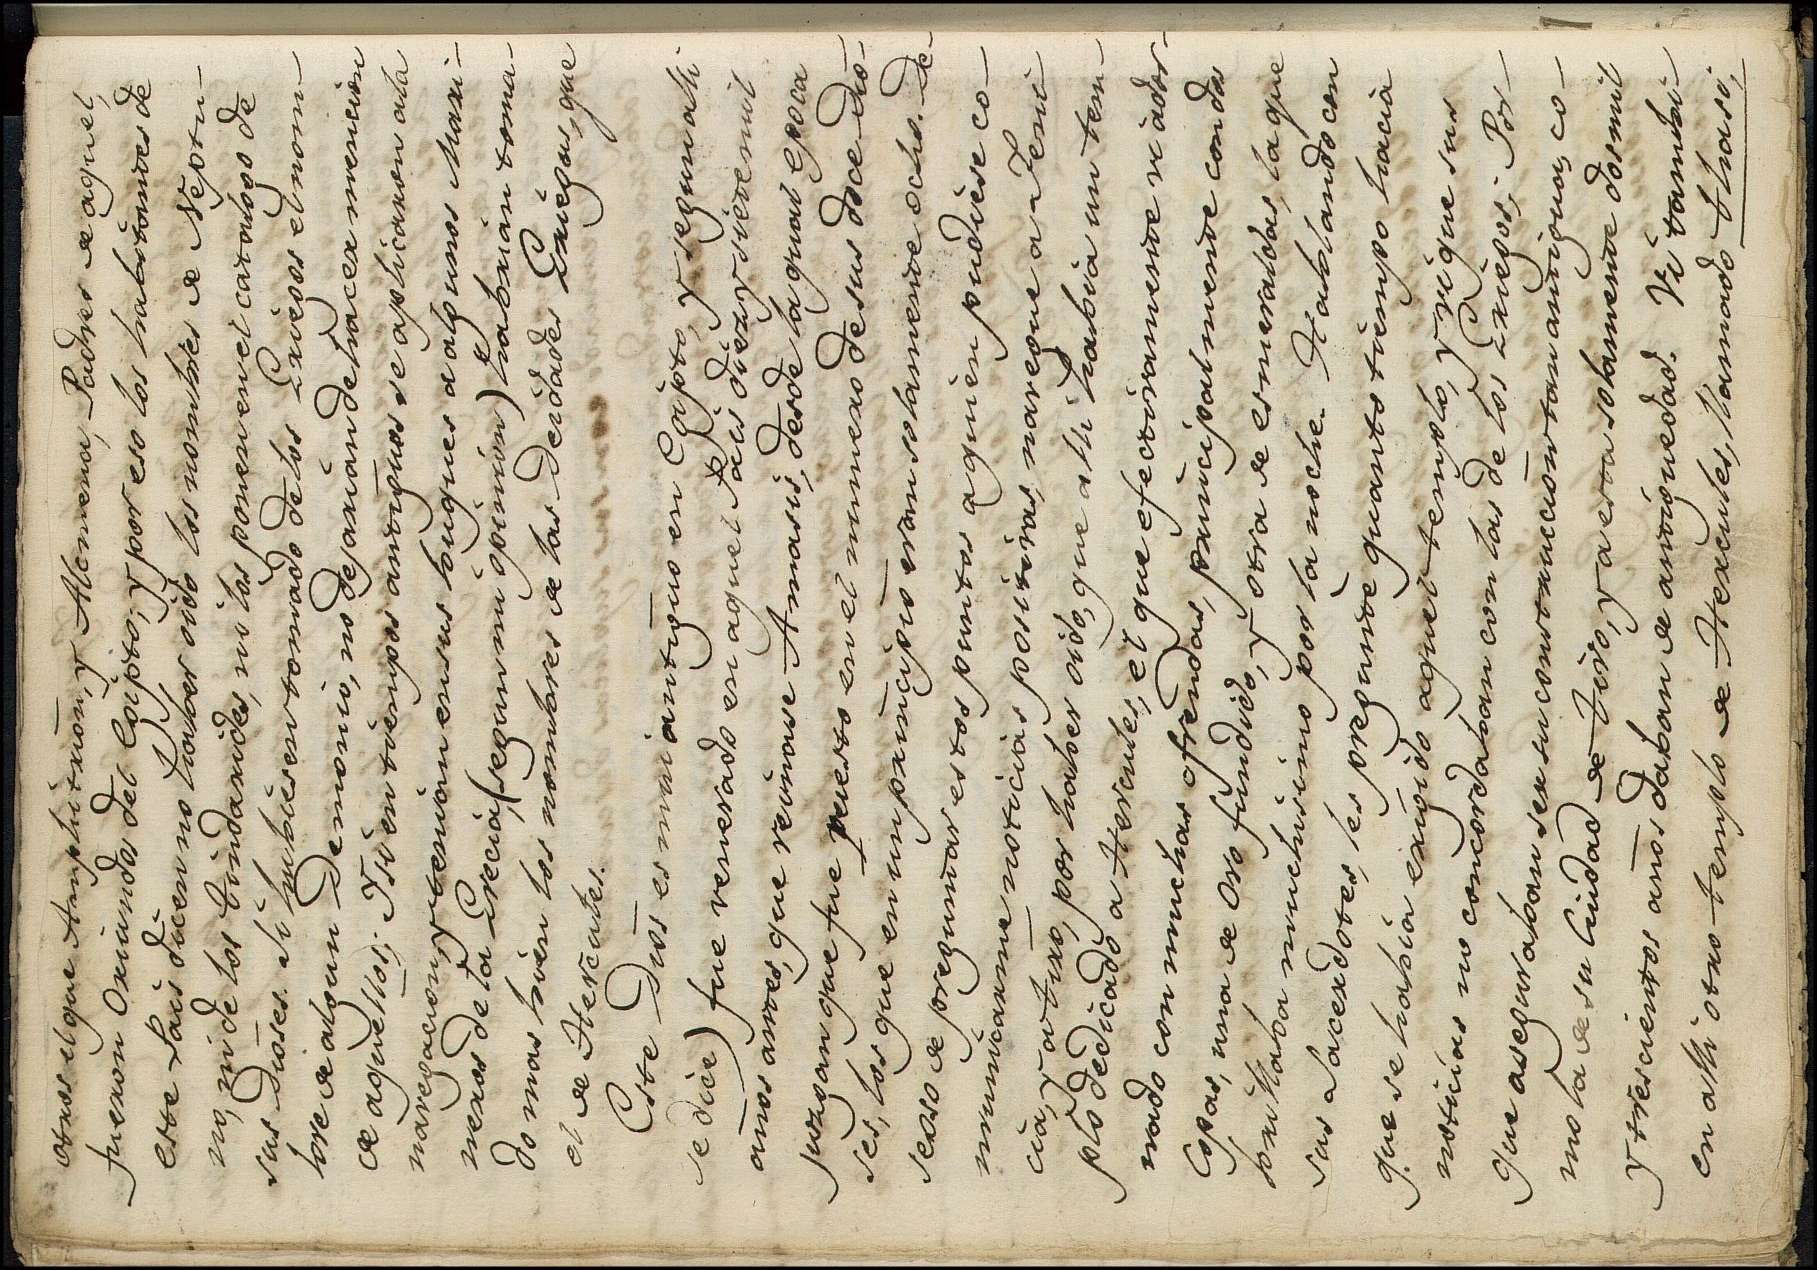 otros el que Amphitrion, y Alcmena, Padres de aquel,
fueron Oriundos del Egipto; y por eso los habitantes de
este Pais dicen no haber oido los nombres de Neptu-
no, ni de los Tindarides, ni los ponen en el catalogo de
sus Dioses. Si hubiesen tomado de los Griegos el nom-
bre de algun Demonio, no dejarian de hacer mencion
de aquellos; Y si en tiempos antiguos se aplicaron ala
navegacion, y tenian en sus buques a algunos Mari-
neros de la Grecia, (segun mi opinion) habrian toma-
do mas bien los nombres de las Deidades Griegas, que
el de Hercules.
Este Dios es mui antiguo en Egipto, y segun alli
se dice) fue venerado en aquel Pais diez y siete mil
años antes, que reinase Amasis, desde la qual epoca
juzgan que fue puesto en el numero de sus doce Dio-
ses, los que en un principio eran solamente ocho. De-
seoso de preguntar estos puntos a quien pudiese co-
municarme noticias positivas, navegue a Feni-
cia, y a Tiro, por haber oido, que alli habia un tem-
plo dedicado a Hercules, el que efectivamente vi ador-
nado con muchas ofrendas, principalmente con dos
Copas, una de Oro fundido, y otra de esmeraldas, la que
brillaba muchisimo por la noche. Hablando con
sus Sacerdotes, les pregunte quanto tiempo hacia
que se habia erigido aquel templo, y vi que sus
noticias no concordaban con las de los Griegos; Por-
que aseguraban ser su construccion tan antigua, co-
mo la de su Ciudad de Tiro, y a esta solamente dos mil
y trescientos años daban de antiguedad. Vi tambi-
en alli otro templo de Hercules, llamado thasi,